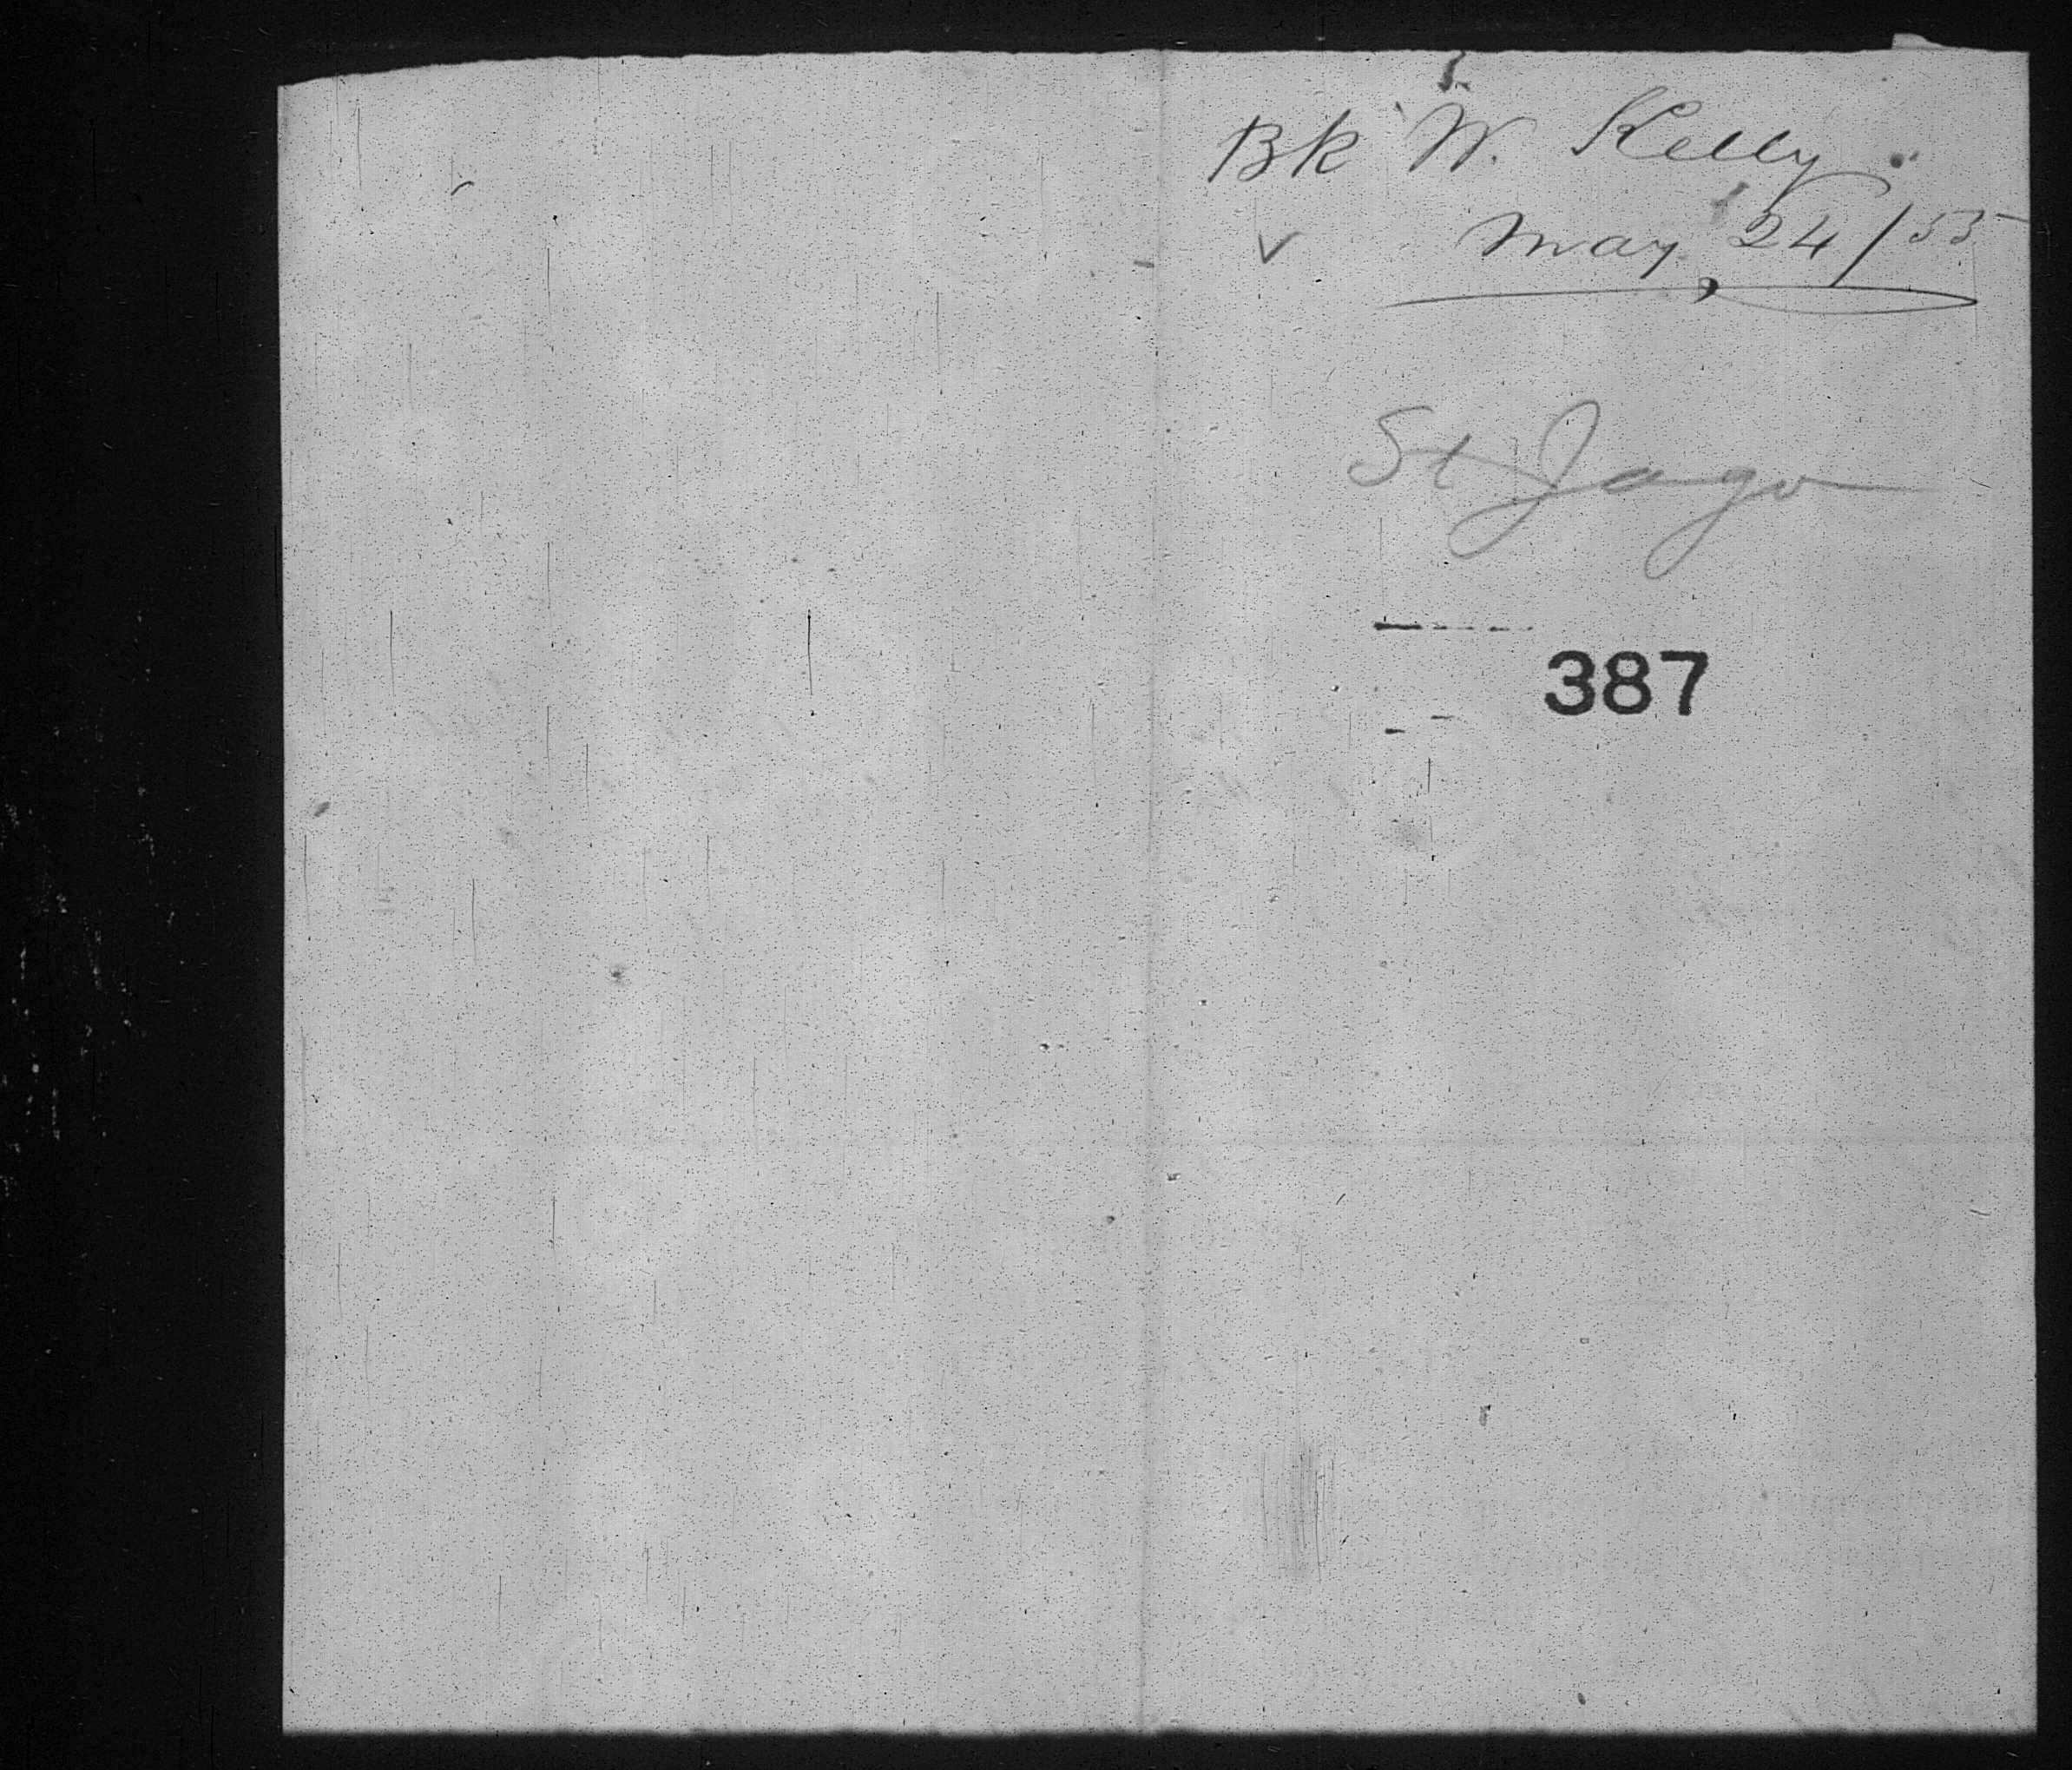 Bk W. Kelly
✓ May 24/55
St Jago
387